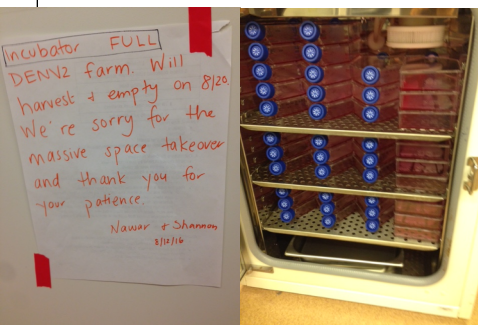 Incubator FULL
DENV2 farm. Will
harvest & empty on 8/20.
We're sorry for the
massive space takeover
and thank you for
your patience.
Nawar & Shannon
8/12/16